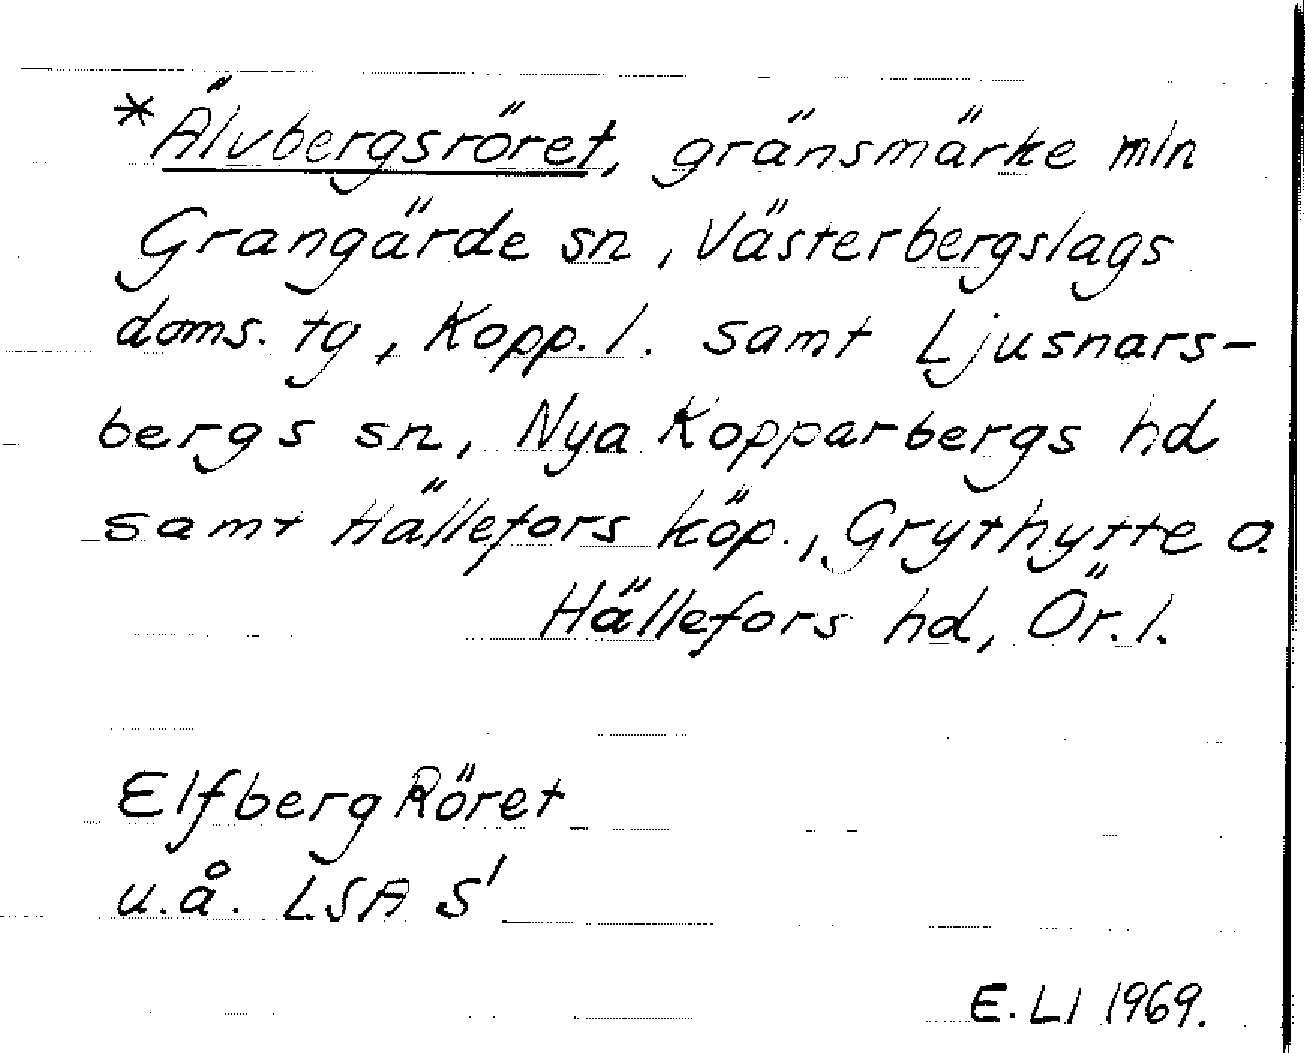 *Älvbergsröret, gränsmärke mln
Grangärde sn, Västerbergslags
doms. tg, Kopp. l. samt Ljusnars-
bergs sn, Nya Kopparbergs hd
samt Hällefors köp., Grythytte o.
Hällefors hd, Ör. l.
Elfberg Röret
u.å. LSA S'
E. LI 1969.